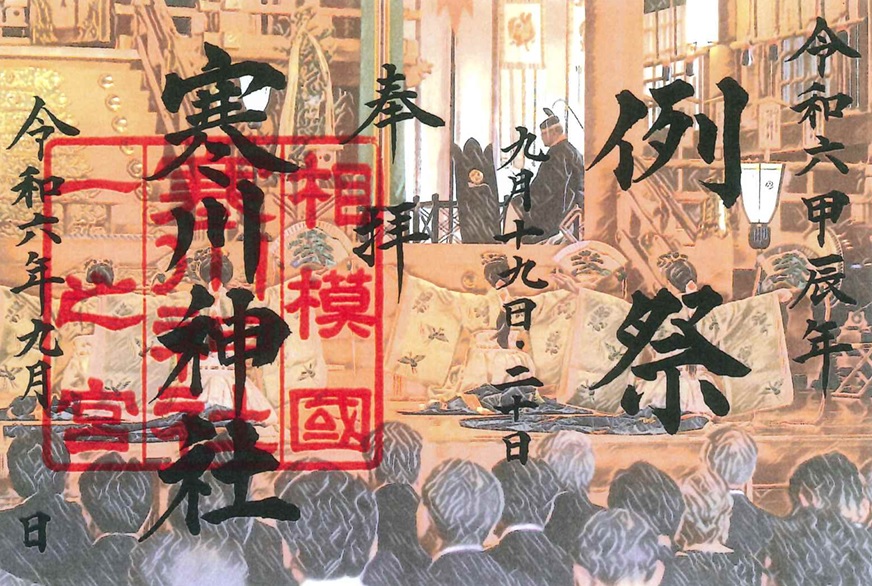 令和六甲辰年
例祭
九月十九日・二十日
奉拝
寒川神社
相模國
一之宮
令和六年九月 日